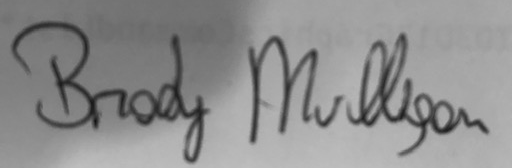 Brody Mulligan